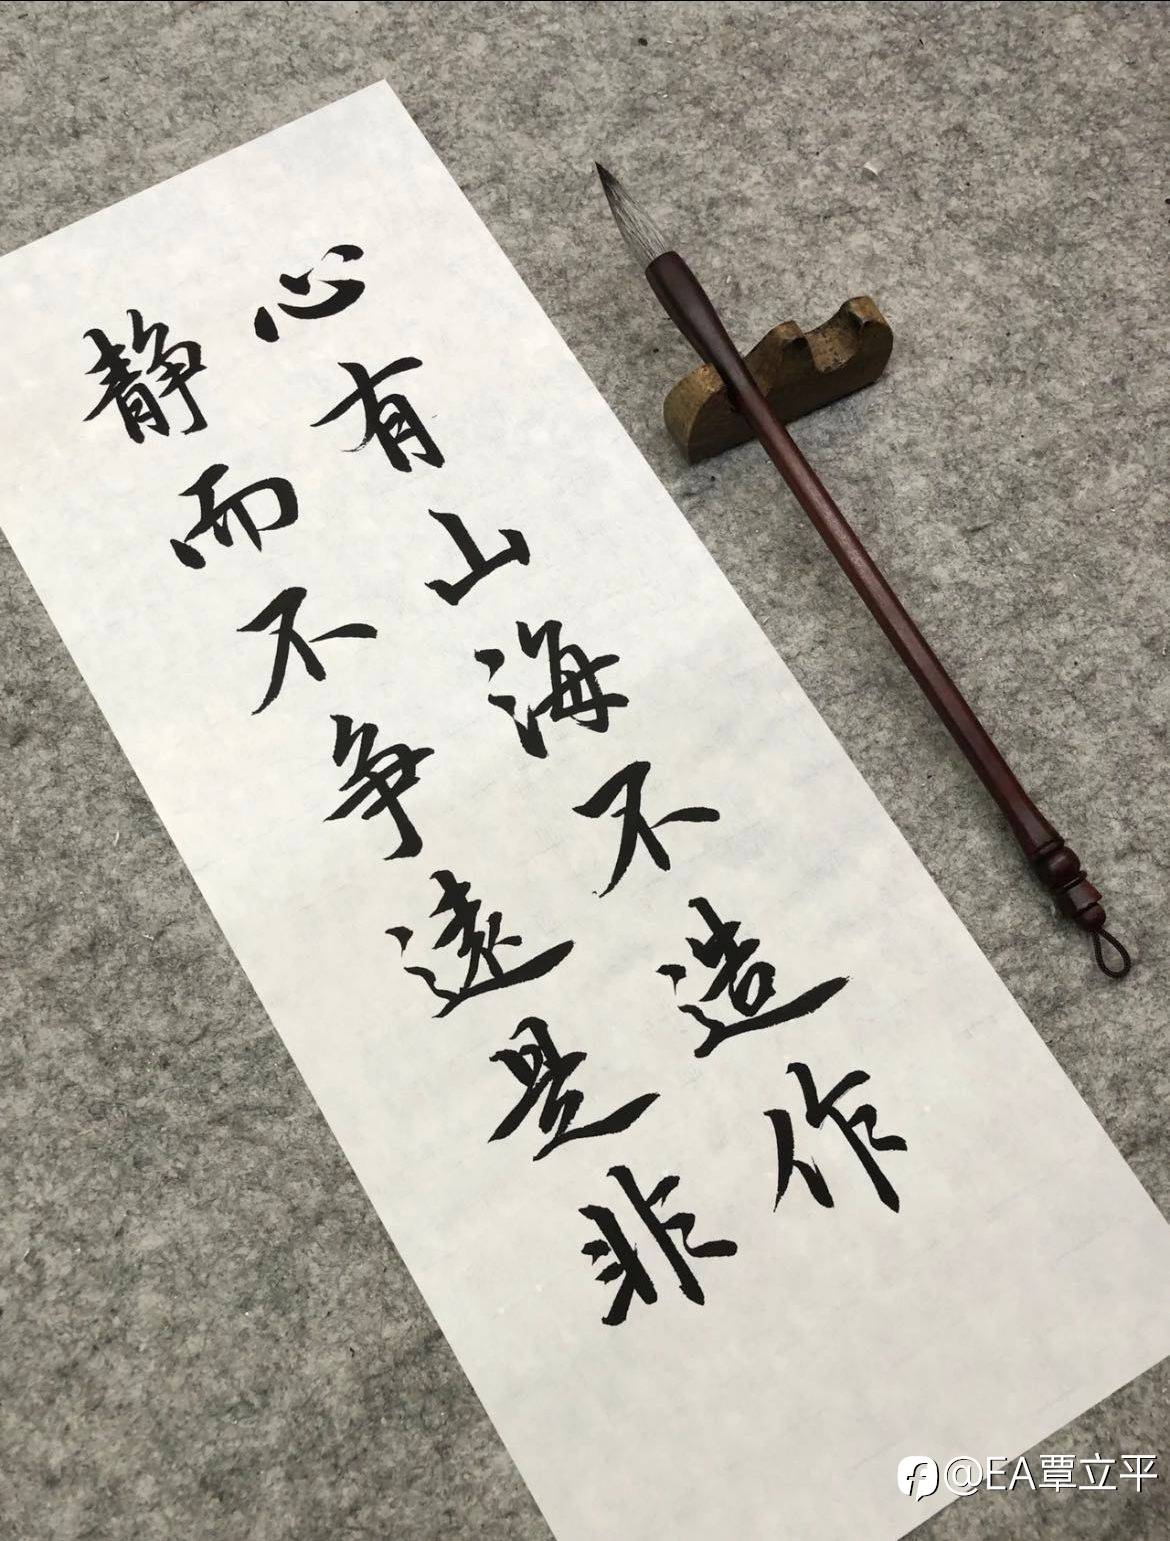 心有山海不造作
静而不争遠是非
@EA覃立平